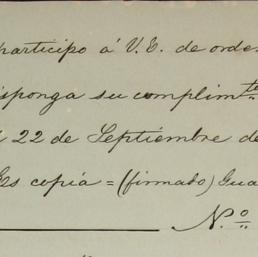 participo á V. E. de orde
isponga su complimte
22 de Septiembre de
Es copia = (firmado) Gua
N.o